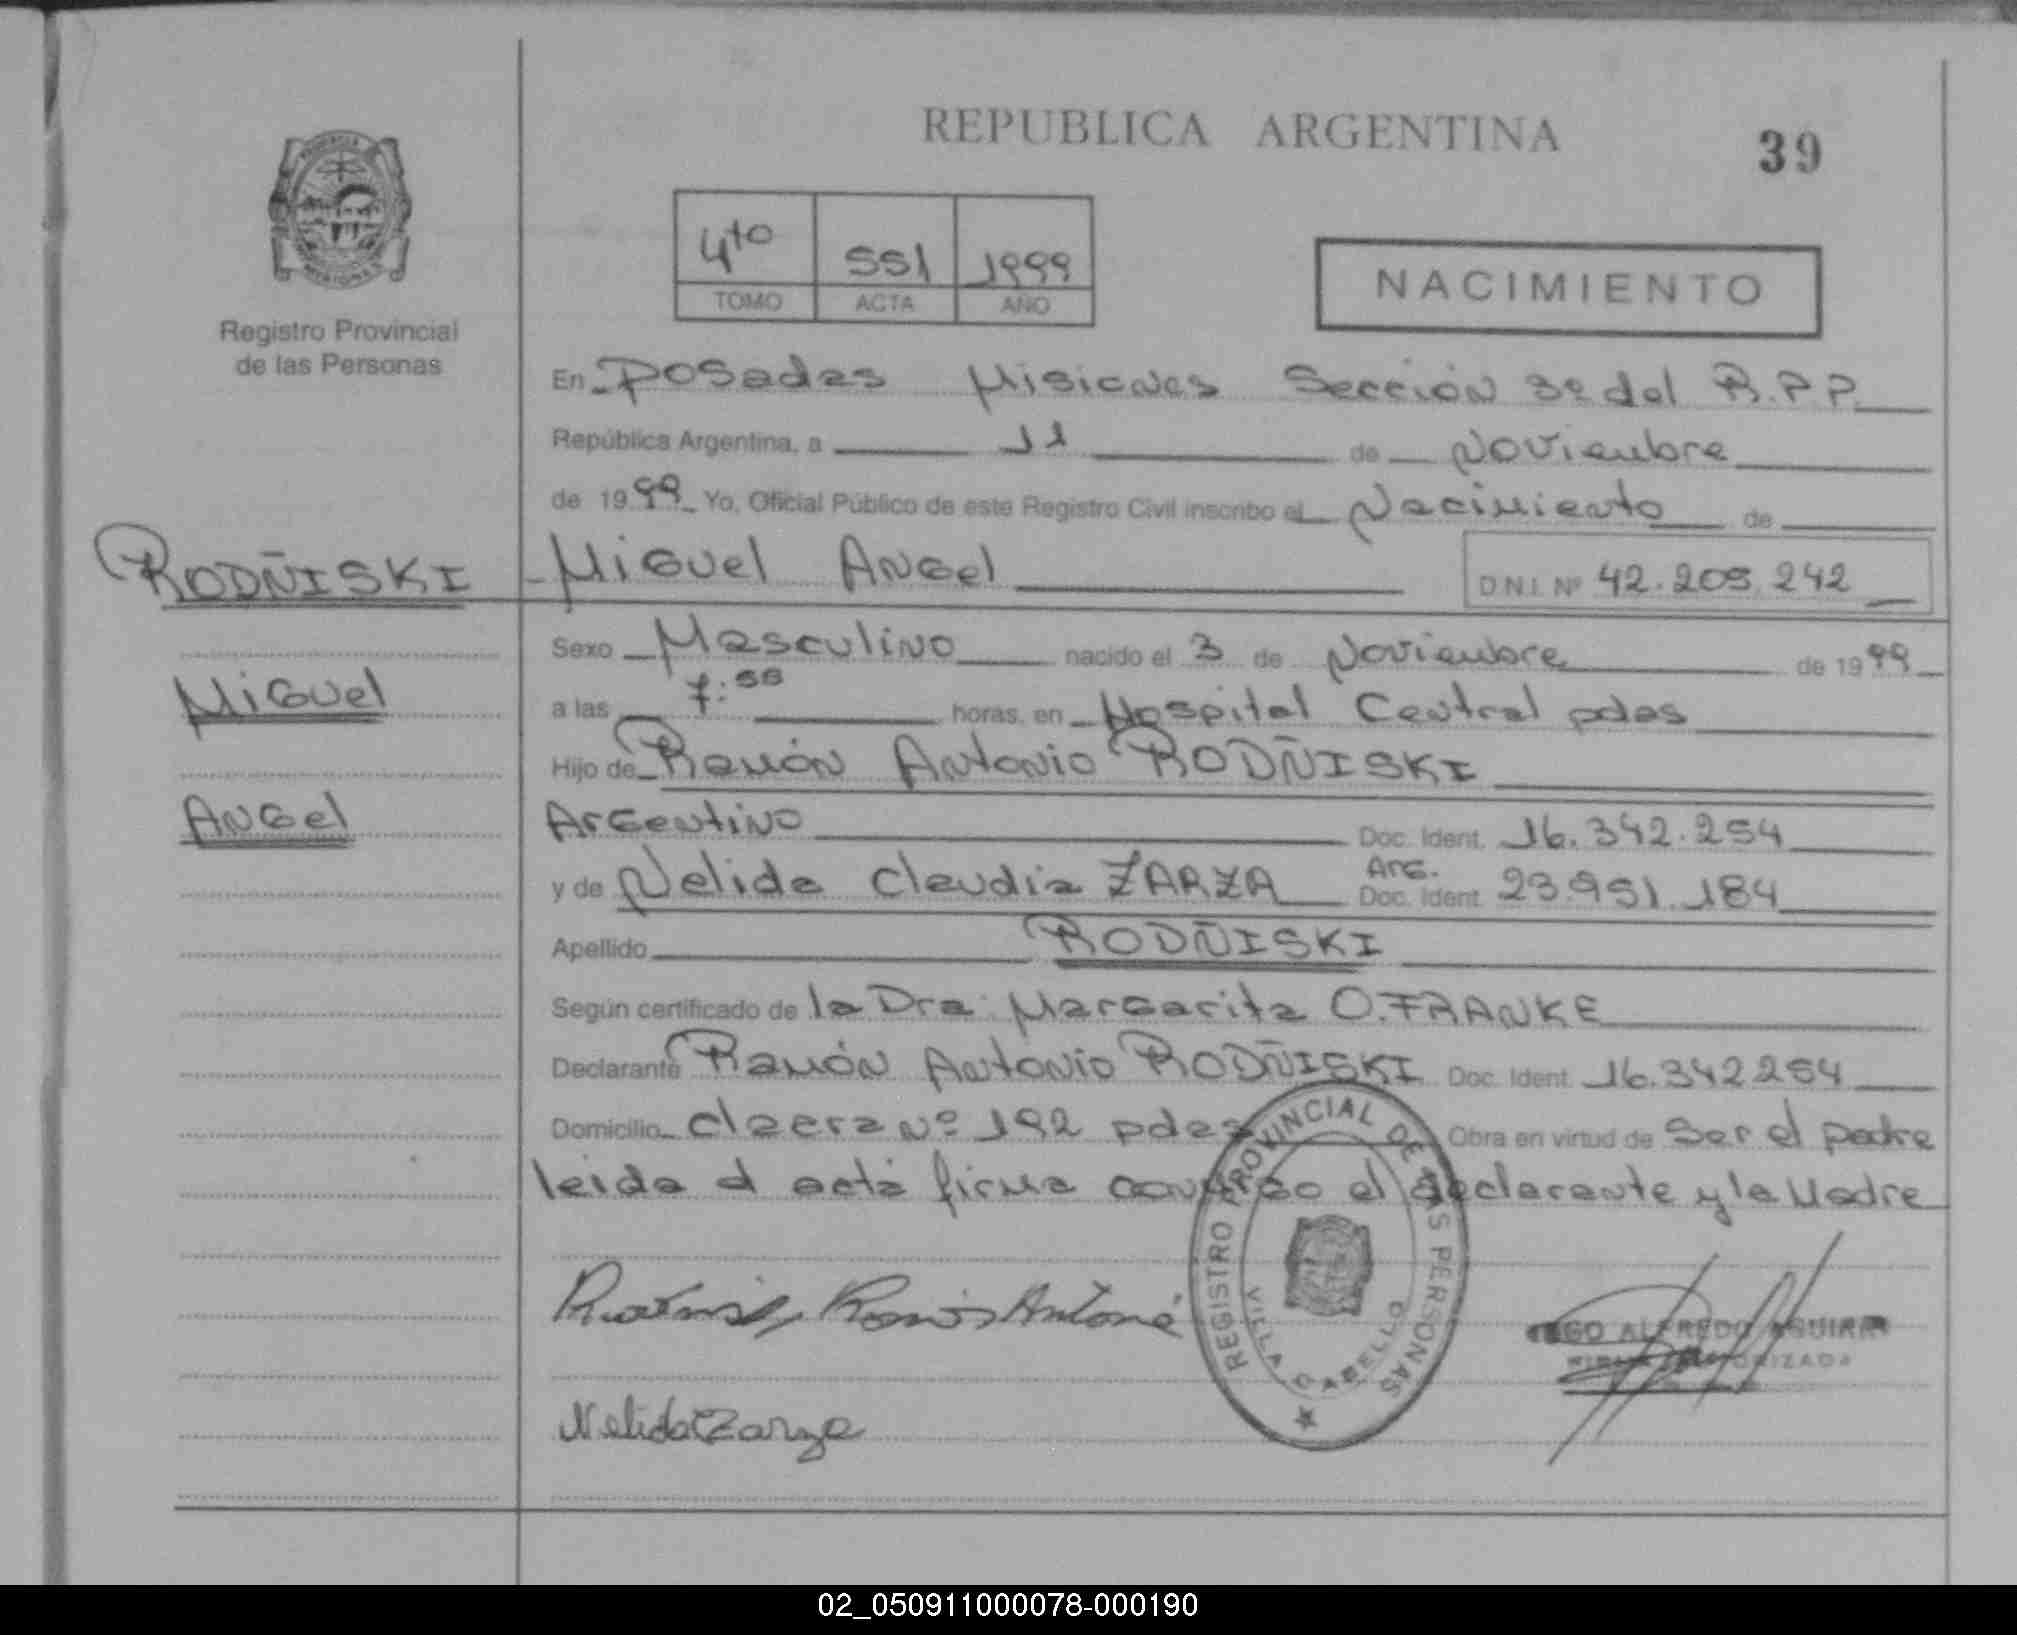 REPUBLICA ARGENTINA
39
4to 551 1999
TOMO ACTA AÑO
NACIMIENTO
Registro Provincial
de las Personas
En Posadas Misiones Sección 3º del R.P.P.
República Argentina, a 11 de Noviembre
de 1999 Yo, Oficial Público de este Registro Civil inscribo el Nacimiento de
RODÑISKI Miguel Angel D.N.I. Nº 42.205.242
Miguel
Angel
Sexo Masculino nacido el 3 de Noviembre de 1999
a las 7:55 horas, en Hospital Central pdas
Hijo de Ramón Antonio RODÑISKI
Argentino Doc. Ident. 16.342.254
y de Nelida Claudia ZARZA Arg. Doc. Ident. 23.951.184
Apellido RODÑISKI
Según certificado de la Dra. Margarita O. FRANKE
Declarante Ramón Antonio RODÑISKI Doc. Ident. 16.342254
Domicilio Claera Nº 192 pdas Obra en virtud de Ser el padre
leida el acta firma conmigo el declarante y la Madre
Ramón Antonio
Nelida Zarza
REGISTRO PROVINCIAL DE LAS PERSONAS
VILLA CABELLO
ALFREDO AGUIRRE
FIRMA AUTORIZADA
02_050911000078-000190